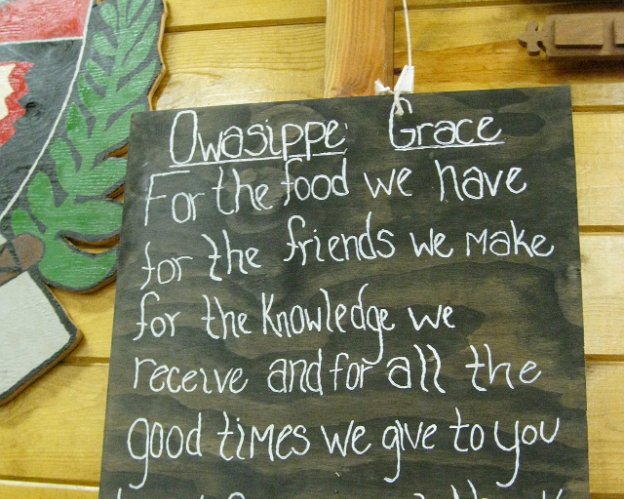 Owasippe Grace
For the food we have
for the friends we make
for the Knowledge we
receive and for all the
good times we give to you